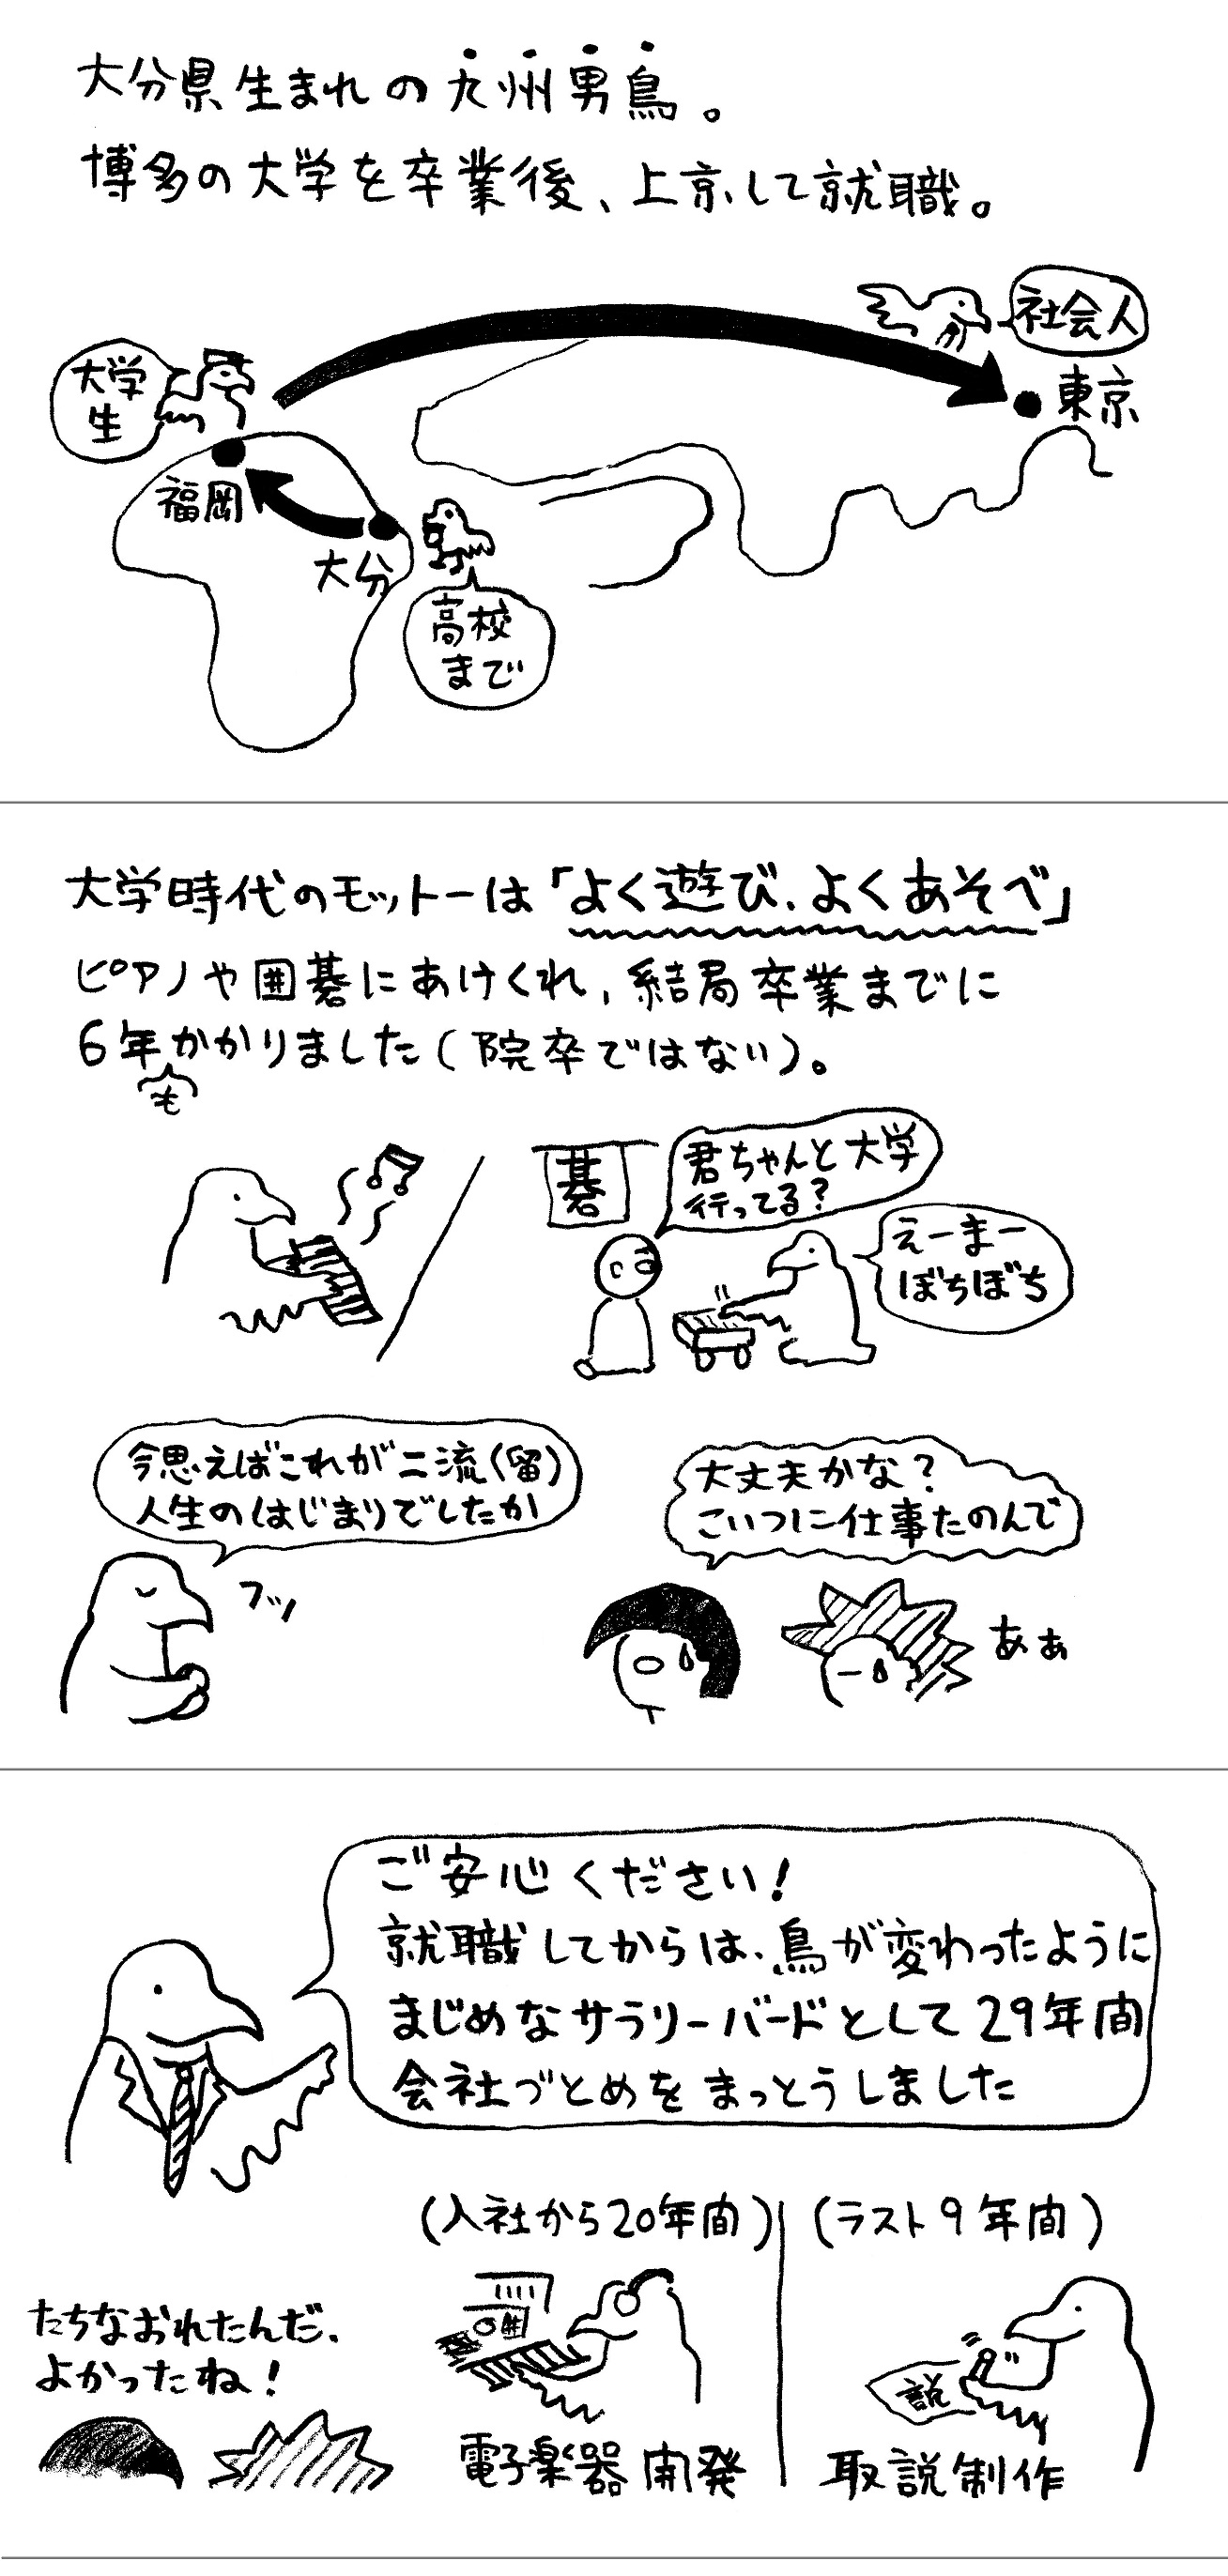 大分県生まれの九州男鳥。
博多の大学を卒業後、上京して就職。
社会人
大学
生
東京
福岡
大分
高校
まで
大学時代のモットーは「よく遊び、よくあそべ」
ピアノや囲碁にあけくれ、結局卒業までに
6年かかりました(院卒ではない)。
も
碁
君ちゃんと大学
行ってる?
えーまー
ぼちぼち
今思えばこれが二流(留)
人生のはじまりでしたか
フッ
大丈夫かな?
こいつに仕事たのんで
あぁ
ご安心ください!
就職してからは、鳥が変わったように
まじめなサラリーバードとして29年間
会社づとめをまっとうしました
(入社から20年間)
(ラスト9年間)
たちなおれたんだ、
よかったね!
説
電子楽器開発
取説制作